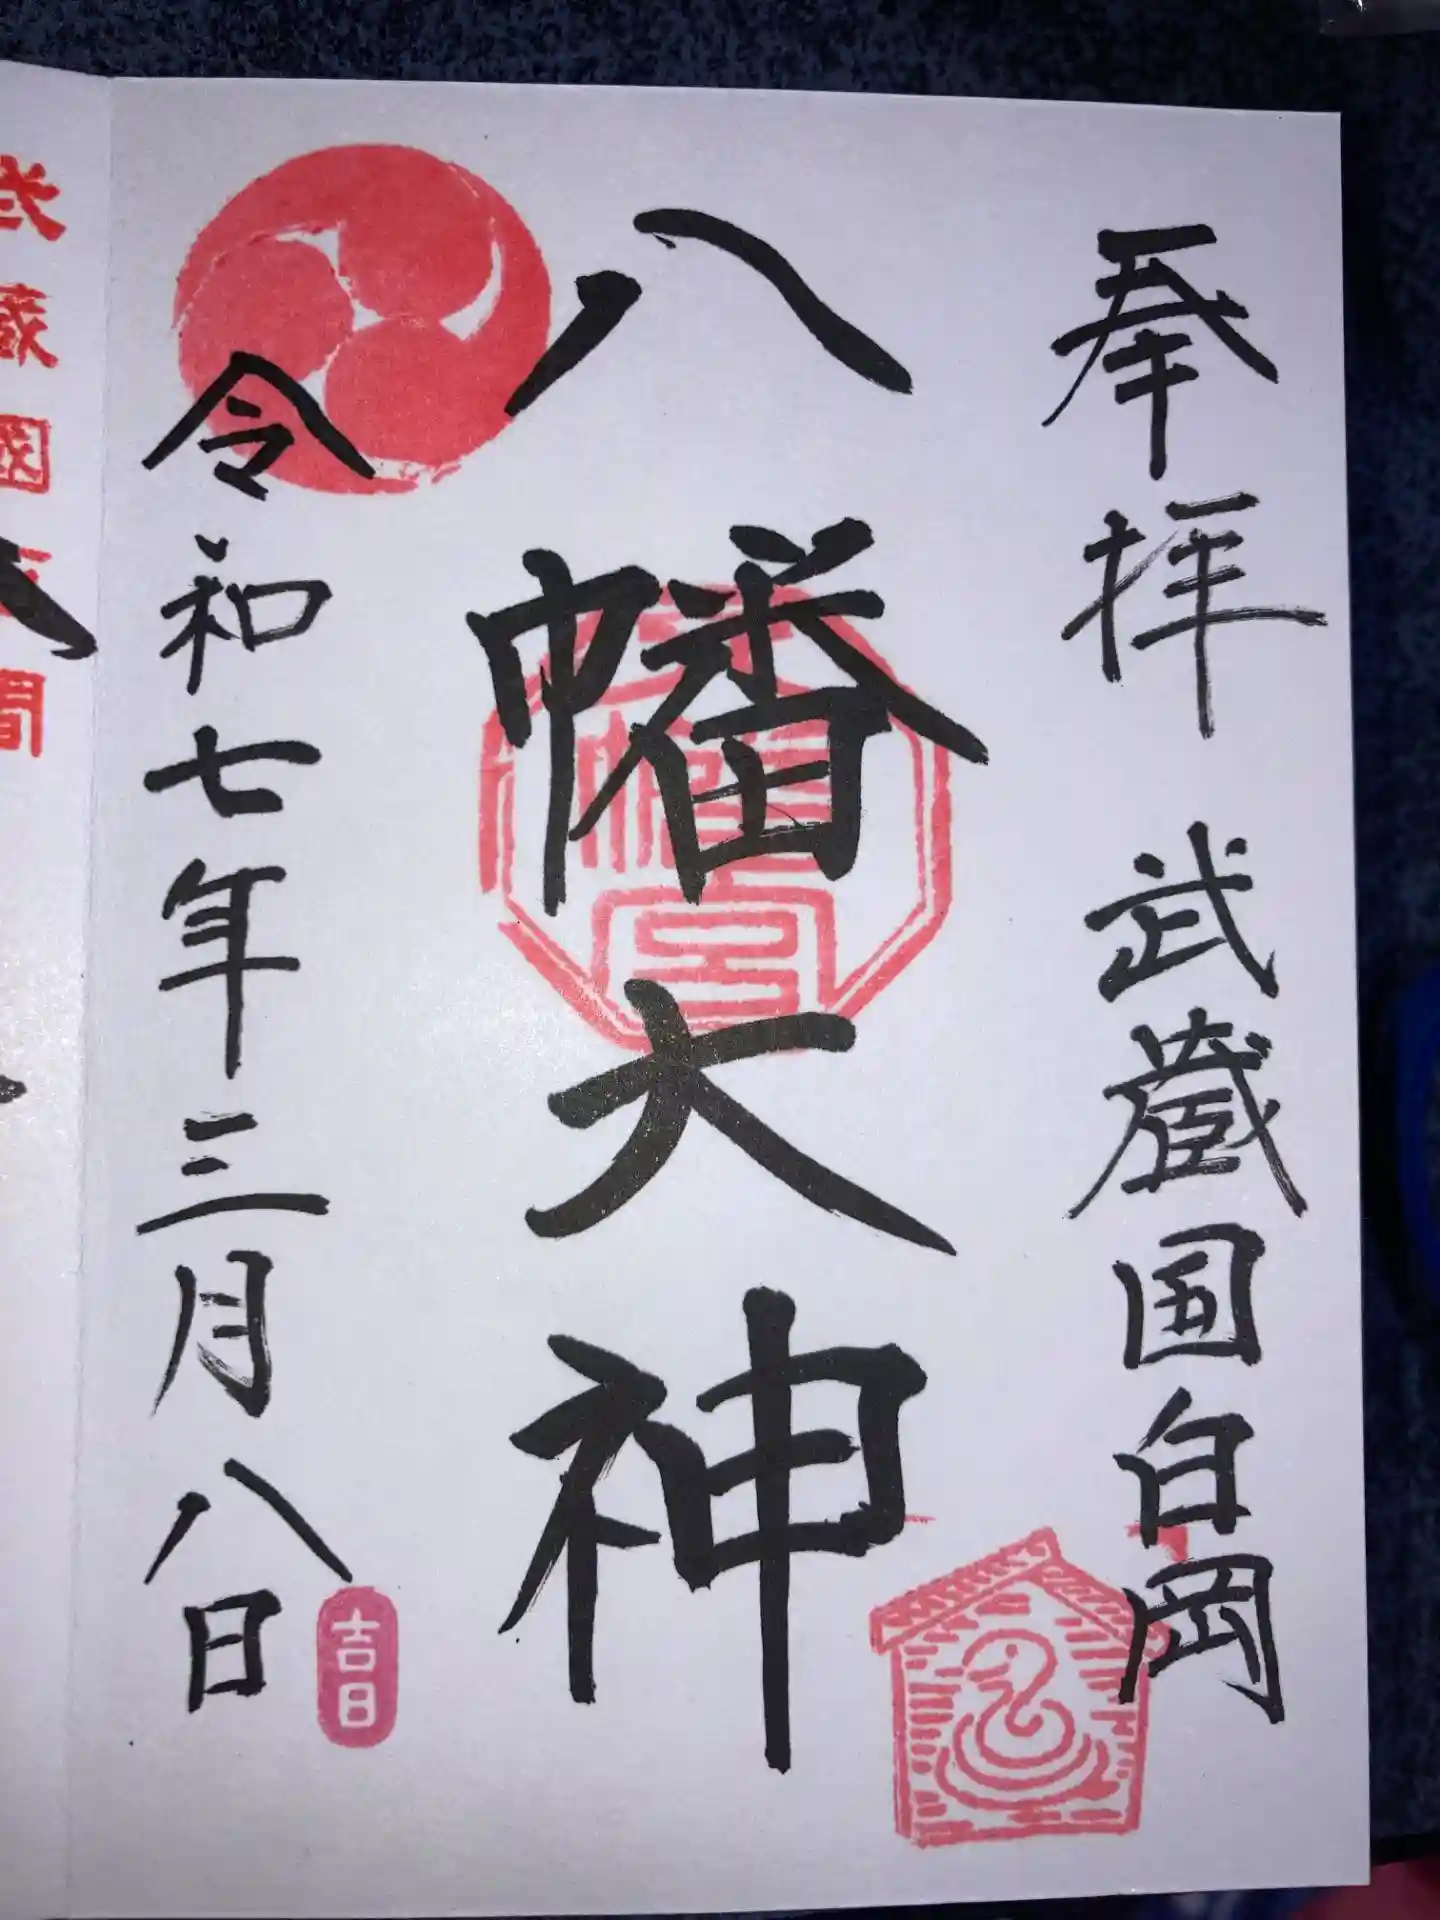 奉拝 武蔵国白岡
八幡大神
令和七年三月八日
吉日
八幡宮
武蔵國
間